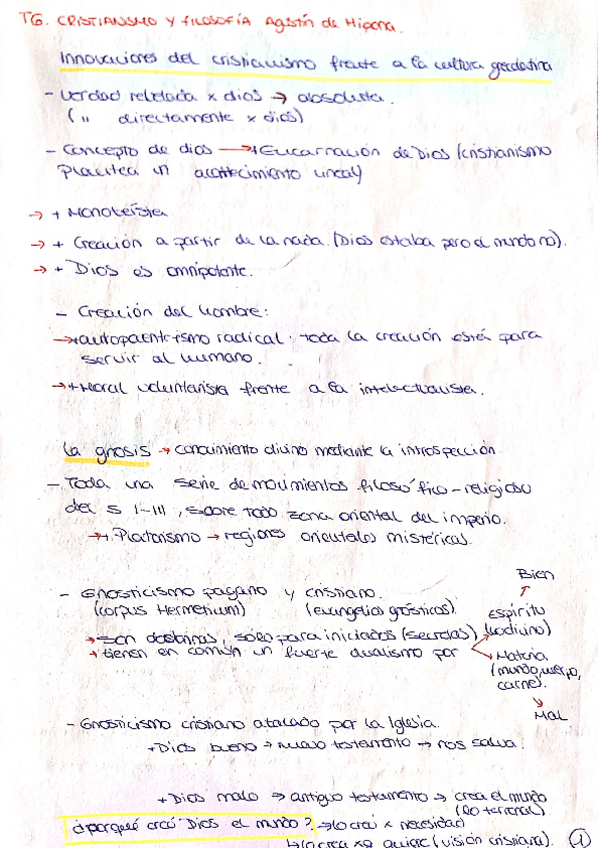 T6. CRISTIANISMO Y FILOSOFÍA Agustín de Hipona.
Innovaciones del cristianismo frente a la cultura grecolatina
- Verdad rebelada x dios → absoluta.
( " directamente x dios)
- Concepto de dios → + Encarnación de Dios (cristianismo
plantea un acontecimiento lineal)
→ + Monoteísta
→ + Creación a partir de la nada. (Dios estaba pero el mundo no).
→ + Dios es omnipotente.
- Creación del hombre:
→ + antropocentrismo radical: toda la creación está para
servir al humano.
→ + Moral voluntarista frente a la intelectualista.
La gnosis → conocimiento divino mediante la introspección.
- Toda una serie de movimientos filosófico-religioso
del s I-III, sobre todo zona oriental del imperio.
→ + Platonismo → regiones orientales mistéricas.
- Gnosticismo pagano y cristiano.
(corpus Hermetium) (evangelios gnósticos)
→ son doctrinas, sólo para iniciados (secretas)
+ tienen en común un fuerte dualismo por
Bien
↑
Espíritu
(lo divino)
Materia
(mundo, cuerpo,
carne).
↓
MAL
- Gnosticismo cristiano atacado por la Iglesia.
+ Dios bueno → nuevo testamento → nos salva.
+ Dios malo → antiguo testamento → crea el mundo
(lo terrenal)
¿porqué creó Dios el mundo? → lo creó x necesidad
→ lo crea xq quiere (visión cristiana). 1